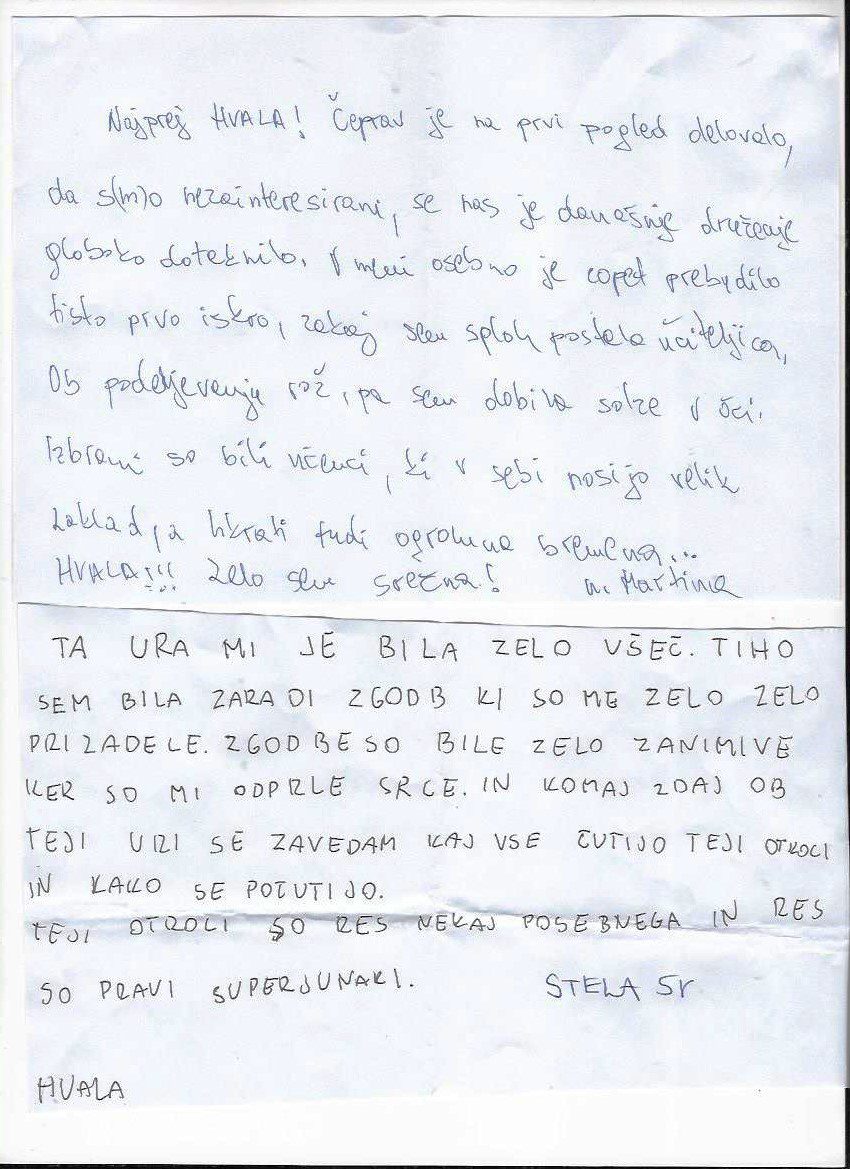 Najprej HVALA! Čeprav je na prvi pogled delovalo,
da s(m)o nezainteresirani, se nas je današnje druženje
globoko dotaknilo. V meni osebno je zopet prebudilo
tisto prvo iskro, zakaj sem sploh postala učiteljica,
Ob podeljevanju rož, pa sem dobila solze v oči.
Izbrani so bili učenci, ki v sebi nosijo velik
zaklad, a hkrati tudi ogromna bremena...
HVALA!!! Zelo sem srečna! Martina
TA URA MI JE BILA ZELO VŠEČ. TIHO
SEM BILA ZARADI ZGODB KI SO ME ZELO ZELO
PRIZADELE. ZGODBE SO BILE ZELO ZANIMIVE
KER SO MI ODPRLE SRCE. IN KOMAJ ZDAJ OB
TEJI URI SE ZAVEDAM KAJ VSE ČUTIJO TEJI OTROCI
IN KAKO SE POČUTIJO.
TEJI OTROCI SO RES NEKAJ POSEBNEGA IN RES
SO PRAVI SUPERJUNAKI. STELA 5r
HVALA